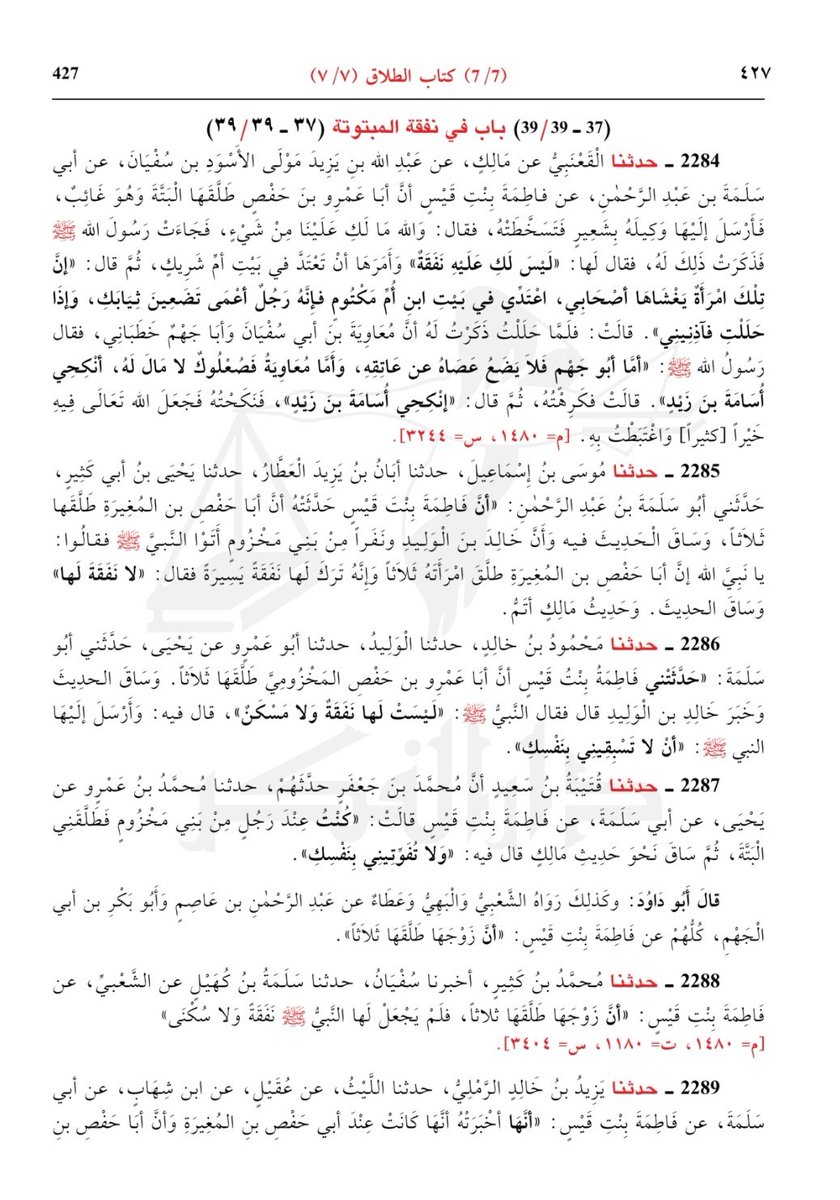 ٤٢٧ (7/7) كتاب الطلاق (٧/٧) 427
(37 ـ 39/39) باب في نفقة المبتوتة (٣٧ ـ ٣٩/٣٩)
2284 ـ حدثنا الْقَعْنَبِيُّ عن مَالِكٍ، عن عَبْدِ الله بن يَزِيدَ مَوْلَى الأسْوَدِ بن سُفْيَانَ، عن أبي
سَلَمَةَ بن عَبْدِ الرَّحْمٰنِ، عن فاطِمَةَ بِنْتِ قَيْسٍ أنَّ أبَا عَمْرِو بنَ حَفْصٍ طَلَّقَهَا الْبَتَّةَ وَهُوَ غَائِبٌ،
فَأَرْسَلَ إلَيْهَا وَكِيلَهُ بِشَعِيرٍ فَتَسَخَّطَتْهُ، فقال: وَالله مَا لَكِ عَلَيْنَا مِنْ شَيْءٍ، فَجَاءَتْ رَسُولَ الله ﷺ
فَذَكَرَتْ ذَلِكَ لَهُ، فقال لَها: «لَيْسَ لَكِ عَلَيْهِ نَفَقَةٌ» وَأمَرَهَا أنْ تَعْتَدَّ في بَيْتِ أمِّ شَرِيكٍ، ثُمَّ قال: «إنَّ
تِلْكَ امْرَأةٌ يَغْشَاهَا أصْحَابِي، اعْتَدِّي في بَيْتِ ابنِ أُمِّ مَكْتُومٍ فإنَّهُ رَجُلٌ أعْمَى تَضَعِينَ ثِيَابَكِ، وَإذَا
حَلَلْتِ فآذِنِينِي». قالَتْ: فلَمَّا حَلَلْتُ ذَكَرْتُ لَهُ أنَّ مُعَاوِيَةَ بنَ أبي سُفْيَانَ وَأبَا جَهْمٍ خَطَبَانِي، فقال
رَسُولُ الله ﷺ: «أمَّا أبُو جَهْمٍ فَلاَ يَضَعُ عَصَاهُ عن عَاتِقِهِ، وَأمَّا مُعَاوِيَةُ فَصُعْلُوكٌ لا مَالَ لَهُ، أنْكِحِي
أُسَامَةَ بنَ زَيْدٍ». قالَتْ فكَرِهْتُهُ، ثُمَّ قال: «إنْكِحِي أُسَامَةَ بنَ زَيْدٍ»، فَنَكَحْتُهُ فَجَعَلَ الله تَعَالَى فِيهِ
خَيْراً [كثيراً] وَاغْتَبَطْتُ بِهِ. [م= ١٤٨٠، س= ٣٢٤٤].
2285 ـ حدثنا مُوسَى بنُ إِسْمَاعِيلَ، حدثنا أبَانُ بنُ يَزِيدَ الْعَطَّارُ، حدثنا يَحْيَى بنُ أبي كَثِيرٍ،
حَدَّثَني أبُو سَلَمَةَ بنُ عَبْدِ الرَّحْمٰنِ: «أنَّ فَاطِمَةَ بِنْتَ قَيْسٍ حَدَّثَتْهُ أنَّ أبَا حَفْصِ بن المُغِيرَةِ طَلَّقَها
ثَلَاثاً، وَسَاقَ الْحَدِيثَ فيه وَأنَّ خَالِدَ بنَ الْوَلِيدِ ونَفَراً مِنْ بَنِي مَخْزُومٍ أتَوُا النَّبيَّ ﷺ فقالُوا:
يا نَبِيَّ الله إنَّ أبَا حَفْصِ بن المُغِيرَةِ طلَّقَ امْرَأتَهُ ثَلَاثاً وَإنَّهُ تَرَكَ لَها نَفَقَةً يَسِيرَةً فقال: «لا نَفَقَةَ لَها»
وَسَاقَ الحديثَ. وَحَدِيثُ مَالِكٍ أتَمُّ.
2286 ـ حدثنا مَحْمُودُ بنُ خالِدٍ، حدثنا الْوَلِيدُ، حدثنا أبو عَمْرٍو عن يَحْيَى، حَدَّثَني أبُو
سَلَمَةَ: «حَدَّثَتْني فاطِمَةُ بِنْتُ قَيْسٍ أنَّ أبَا عَمْرِو بن حَفْصٍ المَخْزُومِيَّ طَلَّقَهَا ثَلَاثاً. وَسَاقَ الحديثَ
وَخَبَرَ خَالِدِ بن الْوَلِيدِ قال فقال النَّبيُّ ﷺ: «لَيْسَتْ لَها نَفَقَةٌ وَلا مَسْكَنٌ»، قال فيه: وَأرْسَلَ إلَيْهَا
النبي ﷺ: «أنْ لا تَسْبِقِينِي بِنَفْسِكِ».
2287 ـ حدثنا قُتَيْبَةُ بنُ سَعِيدٍ أنَّ مُحمَّدَ بنَ جَعْفَرٍ حدَّثَهُمْ، حدثنا مُحمَّدُ بنُ عَمْرٍو عن
يَحْيَى، عن أبي سَلَمَةَ، عن فاطِمَةَ بِنْتِ قَيْسٍ قالَتْ: «كُنْتُ عِنْدَ رَجُلٍ مِنْ بَنِي مَخْزُومٍ فَطَلَّقَنِي
الْبَتَّةَ، ثُمَّ سَاقَ نَحْوَ حَدِيثِ مَالِكٍ قال فيه: «وَلا تُفَوِّتِينِي بِنَفْسِكِ».
قالَ أَبُو دَاوُدَ: وكَذلِكَ رَوَاهُ الشَّعْبِيُّ وَالْبَهِيُّ وَعَطَاءٌ عن عَبْدِ الرَّحْمٰنِ بن عاصِمٍ وَأبُو بَكْرِ بن أبي
الْجَهْمِ، كُلُّهُمْ عن فاطِمَةَ بِنْتِ قَيْسٍ: «أنَّ زَوْجَهَا طَلَّقَهَا ثَلَاثاً».
2288 ـ حدثنا مُحمَّدُ بنُ كَثِيرٍ، أخبرنا سُفْيَانُ، حدثنا سَلَمَةُ بنُ كُهَيْلٍ عن الشَّعْبيِّ، عن
فَاطِمَةَ بِنْتِ قَيْسٍ: «أنَّ زَوْجَهَا طَلَّقَهَا ثلاثاً، فلَمْ يَجْعَلْ لَها النَّبيُّ ﷺ نَفَقَةً وَلا سُكْنَى»
[م= ١٤٨٠، ت= ١١٨٠، س= ٣٤٠٤].
2289 ـ حدثنا يَزِيدُ بنُ خَالِدٍ الرَّمْلِيُّ، حدثنا اللَّيْثُ، عن عُقَيْلٍ، عن ابن شِهَابٍ، عن أبي
سَلَمَةَ، عن فَاطِمَةَ بِنْتِ قَيْسٍ: «أنَّهَا أخْبَرَتْهُ أنَّهَا كَانَتْ عِنْدَ أبي حَفْصِ بن المُغِيرَةِ وَأنَّ أبَا حَفْصِ بن